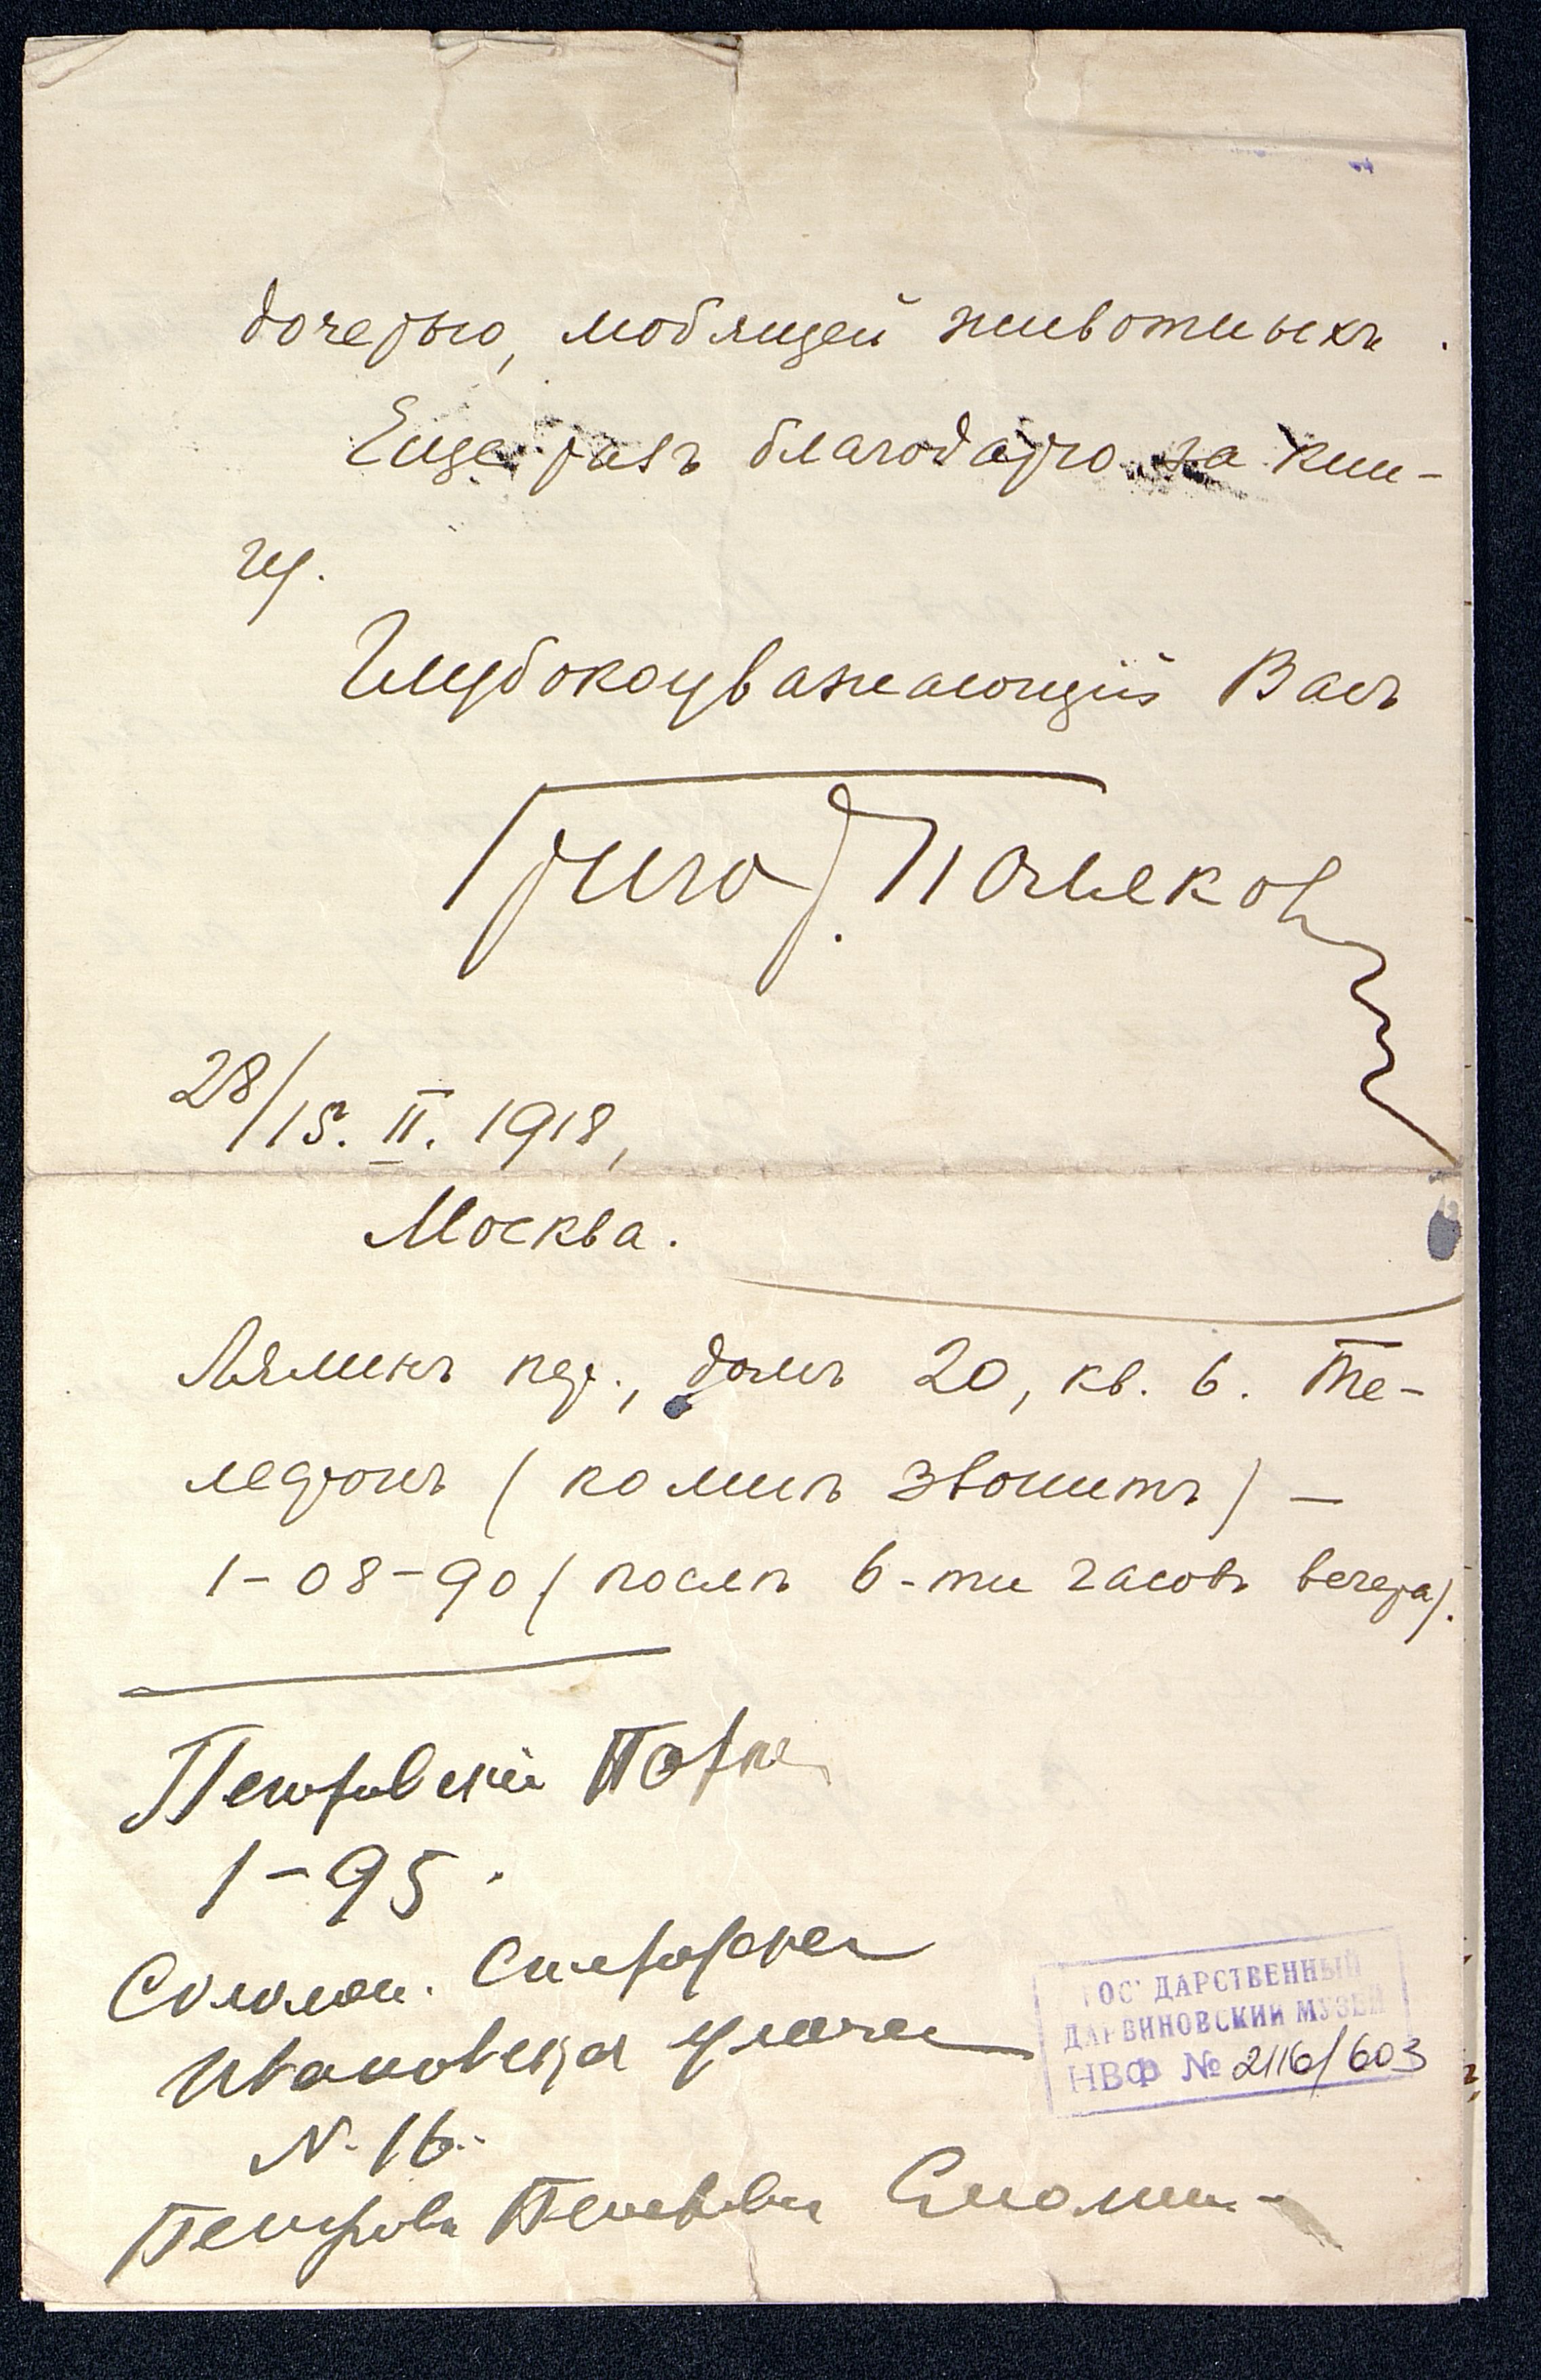 дочерью, любящей животныхъ.
Еще разъ благодарю за кни-
гу.
Глубокоуважающій Васъ
Григор. Поляков
28/15. II. 1918,
Москва.
Лялинъ пер., домъ 20, кв. 6. Те-
лефонъ (коминъ звонитъ) —
1-08-90 (послѣ 6-ти часовъ вечера).
Петровский Парк
1-95.
Соломен. Сторожка
Ивановская улица
№ 16
Петровъ
ГОС ДАРСТВЕННЫЙ
ДАРВИНОВСКИЙ МУЗЕЙ
НВФ № 2116/603